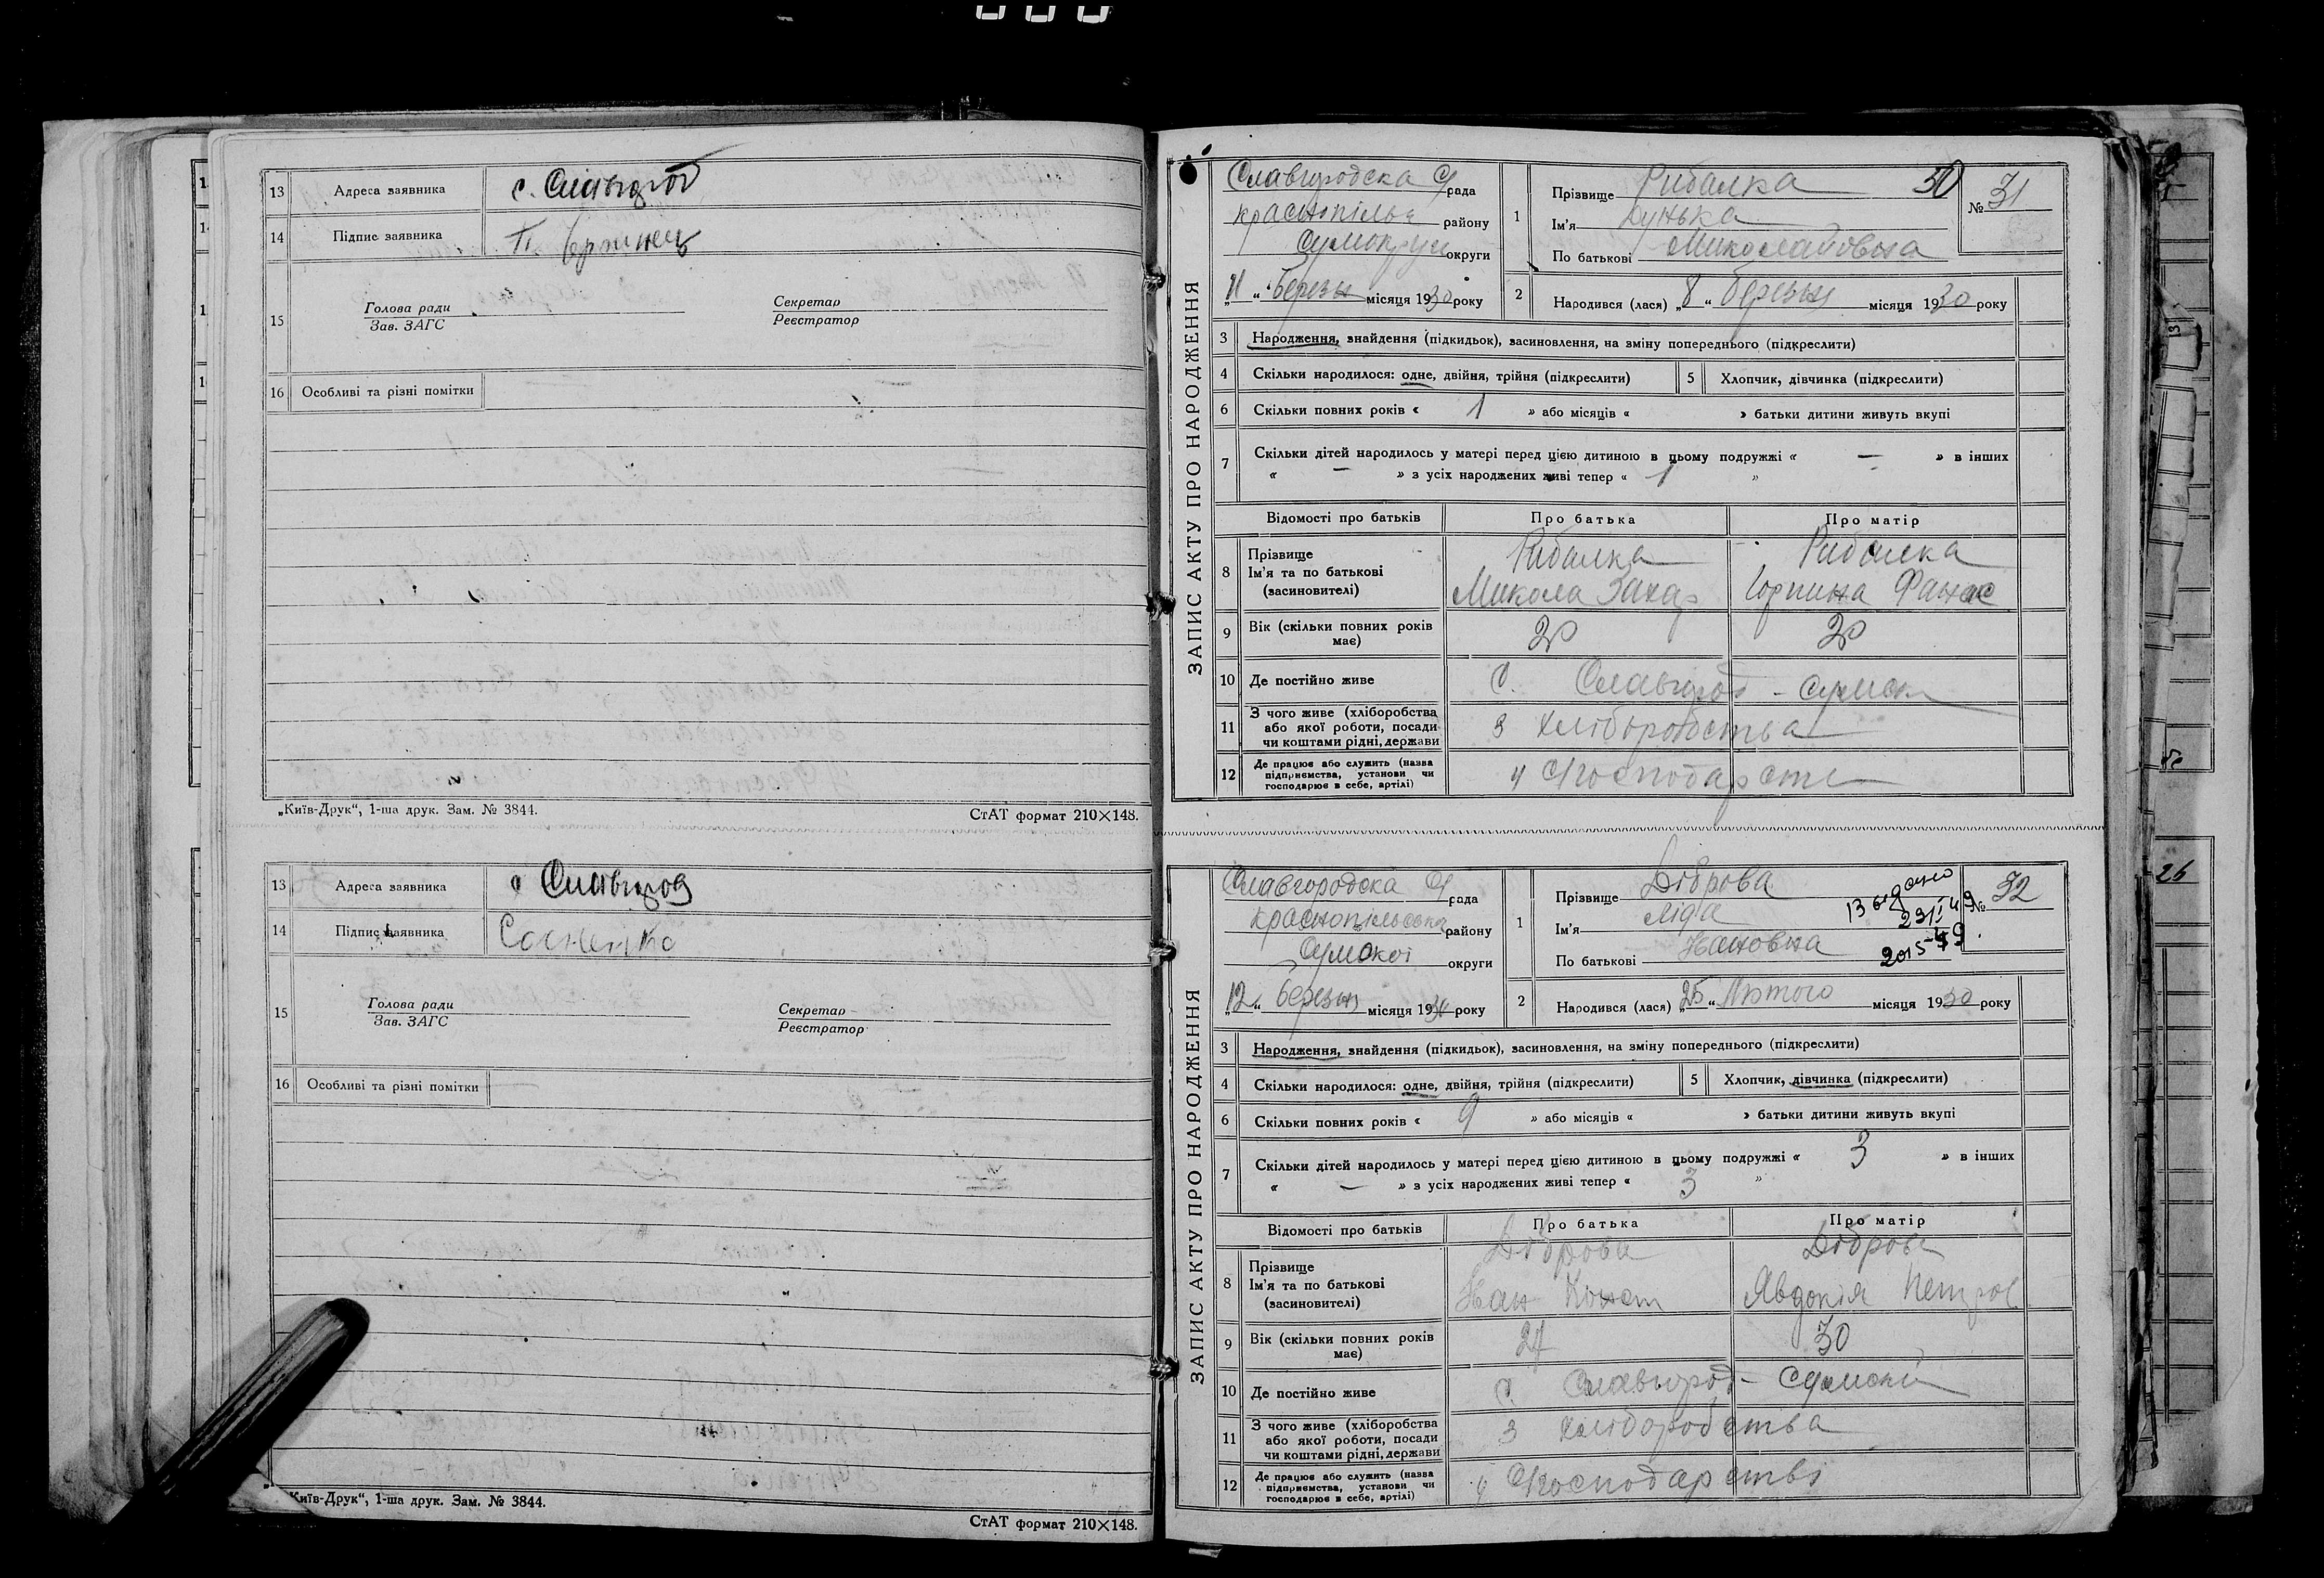 13 Адреса заявника с. Славгород
14 Підпис заявника П.
15 Голова ради Секретар
Зав. ЗАГС Реєстратор
16 Особливі та різні помітки —
„Київ-Друк“, 1-ша друк. Зам. № 3844. СтАТ формат 210×148.
13 Адреса заявника с Славгород
14 Підпис заявника
15 Голова ради Секретар
Зав. ЗАГС Реєстратор
16 Особливі та різні помітки —
Київ-Друк“, 1-ша друк. Зам. № 3844.
СтАТ формат 210×148.
ЗАПИС АКТУ ПРО НАРОДЖЕННЯ
Славгородска С/ рада
Краснопільс району
округи
„11“ Березня місяця 1930 року
1 Прізвище Рибалка 50
№ 31
Ім'я Дунька
По батькові Миколайовна
2 Народився (лася) „8“ березня місяця 1930 року
3 Народження, знайдення (підкидьок), засиновлення, на зміну попереднього (підкреслити)
4 Скільки народилося: одне, двійня, трійня (підкреслити) 5 Хлопчик, дівчинка (підкреслити)
6 Скільки повних років « 1 » або місяців « » батьки дитини живуть вкупі
7 Скільки дітей народилось у матері перед цією дитиною в цьому подружжі « — » в інших
« — » з усіх народжених живі тепер « 1 »
Відомості про батьків Про батька Про матір
8 Прізвище Рибалка Рибалка
Ім'я та по батькові
(засновителі) Микола Захар Горпина Фанас
9 Вік (скільки повних років має) 20 20
10 Де постійно живе с. Славгород - Сумськ
11 З чого живе (хліборобства
або якої роботи, посади
чи коштами рідні, держави з хліборобства
12 Де працює або служить (назва
підприємства, установи чи
господарює в себе, артілі) у С/господарстві
ЗАПИС АКТУ ПРО НАРОДЖЕННЯ
Славгородска С/ рада
Краснопільська району
Сумокої округи
„12“ Березня місяця 1930 року
1 Прізвище Діброва
№ 32
Ім'я Ліда
По батькові Івановна
2 Народився (лася) „25“ Лютого місяця 1930 року
3 Народження, знайдення (підкидьок), засиновлення, на зміну попереднього (підкреслити)
4 Скільки народилося: одне, двійня, трійня (підкреслити) 5 Хлопчик, дівчинка (підкреслити)
6 Скільки повних років « 9 » або місяців « » батьки дитини живуть вкупі
7 Скільки дітей народилось у матері перед цією дитиною в цьому подружжі « 3 » в інших
« — » з усіх народжених живі тепер « 3 »
Відомості про батьків Про батька Про матір
8 Прізвище Діброва Діброва
Ім'я та по батькові
(засиновителі) Іван Конст Явдокія Петров
9 Вік (скільки повних років має) 27 30
10 Де постійно живе с. Славгород - Сумської
11 З чого живе (хліборобства
або якої роботи, посади
чи коштами рідні, держави з хліборобства
12 Де працює або служить (назва
підприємства, установи чи
господарює в себе, артілі) у С/господарстві
26